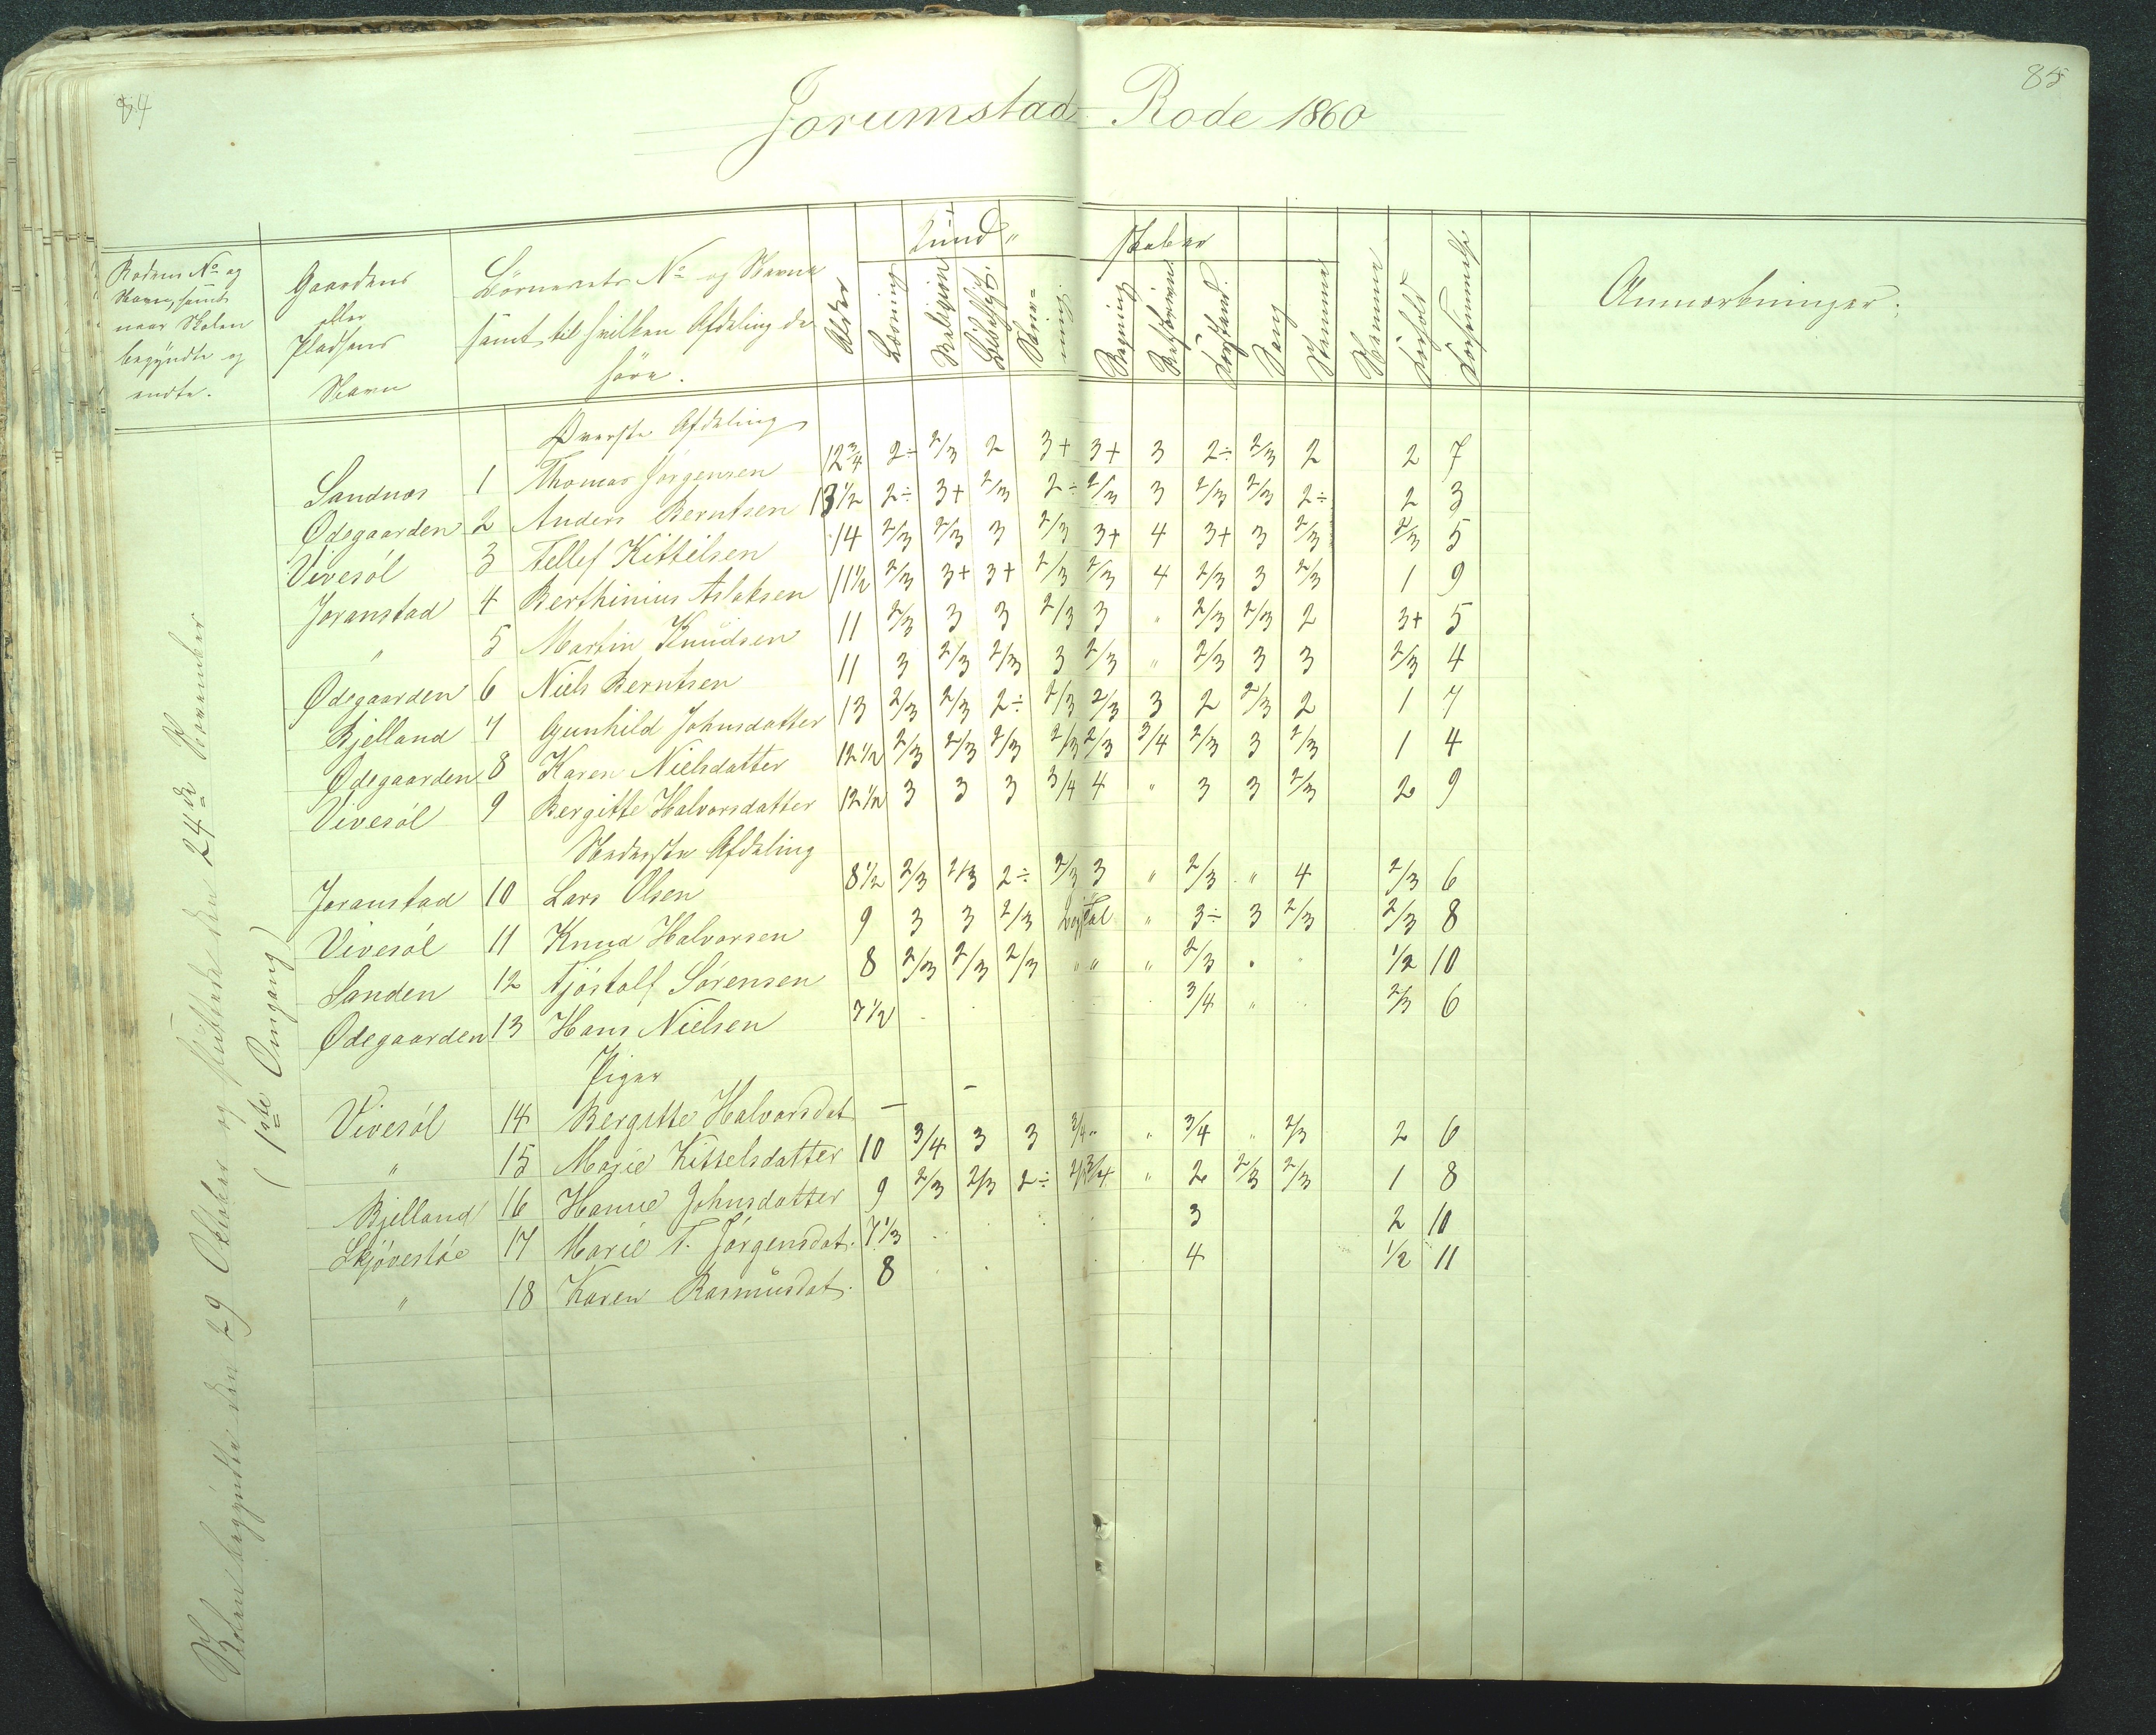 84
85
Jorumstad Rode 1860
Rodens No og Navn, samt naar Skolen begyndte og endte.
Gaardens eller Pladsens Navn
Börnenes No og Navne samt til hvilken Afdeling de höre.
Alder
Kund-
skaber
Læsning
Religion
Skriv=
ning
Regning
Retskrivn.
Forstand
Sang
Stemme
Nemme
Forhold
Forsømmelse
Anmærkninger.
Skolen begyndte den 29 Oktober og sluttede den 24de November
(1ste Omgang)
Øverste Afdeling
Sandnæs 1 Thomas Jörgensen 12 3/4 2÷ 2/3 2 3+ 3+ 3 2÷ 2/3 2 2 7
Ødegaarden 2 Anders Berntsen 13 1/2 2÷ 3+ 2/3 2÷ 2/3 3 2/3 2/3 2÷ 2 3
Vivesöl 3 Tellef Kittilsen 14 2/3 2/3 3 2/3 3+ 4 3+ 3 2/3 2/3 5
Joranstad 4 Berthinius Aslaksen 11 1/2 2/3 3+ 3+ 2/3 2/3 4 2/3 3 2/3 1 9
" 5 Martin Knudsen 11 2/3 3 3 2/3 3 " 2/3 2/3 2 3+ 5
Ødegaarden 6 Niels Berntsen 11 3 2/3 2/3 3 2/3 " 2/3 3 3 2/3 4
Bjelland 7 Gunhild Johnsdatter 13 2/3 2/3 2÷ 2/3 2/3 3 2 2/3 2 1 7
Ødegaarden 8 Karen Nielsdatter 12 1/2 2/3 2/3 2/3 2/3 2/3 3/4 2/3 3 2/3 1 4
Vivesöl 9 Bergitte Halvorsdatter 12 1/2 3 3 3 3/4 4 " 3 3 2/3 2 9
Nederste Afdeling
Joranstad 10 Lars Olsen 8 1/2 2/3 2/3 2÷ 2/3 3 " 2/3 " 4 2/3 6
Vivesöl 11 Knud Halvorsen 9 3 3 2/3 Tal " 3÷ 3 2/3 2/3 8
Sanden 12 Tjöstolf Sörensen 8 2/3 2/3 2/3 " " " 2/3 " " 1/2 10
Ødegaarden 13 Hans Nielsen 7 1/2 3/4 " 2/3 6
Piger
Vivesöl 14 Bergitte Halvorsdat — —
" 15 Marie Kittelsdatter 10 3/4 3 3 3/4 " " 3/4 " 2/3 2 6
Bjelland 16 Hanne Johnsdatter 9 2/3 2/3 2÷ 2/3 3/4 " 2 2/3 2/3 1 8
Skjövestöe 17 Marie T. Jörgensdat. 7 1/3 3 2 10
" 18 Karen Rasmusdat. 8 4 1/2 11